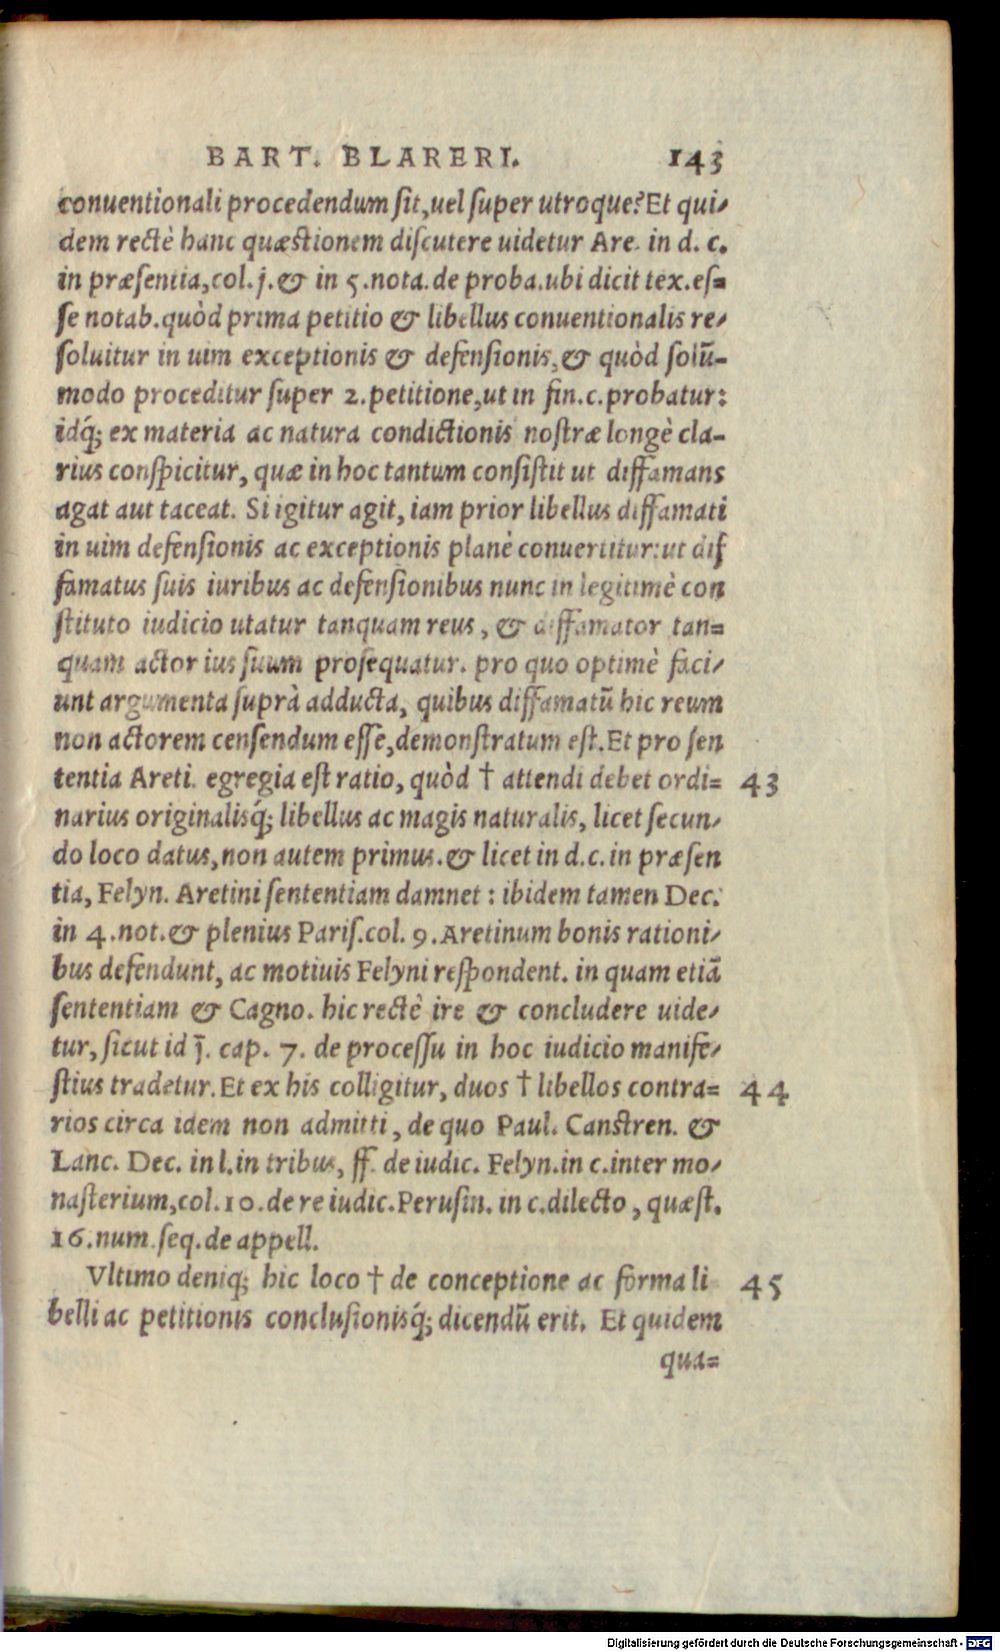 BART. BLARERI. 143
conuentionali procedendum sit, uel super utroque? Et qui-
dem rectè hanc quæstionem discutere uidetur Are. in d. c.
in præsentia, col. j. & in 5. nota. de proba. ubi dicit tex. es=
se notab. quòd prima petitio & libellus conuentionalis re-
soluitur in uim exceptionis & defensionis, & quòd solū-
modo proceditur super 2. petitione, ut in fin. c. probatur:
idq́; ex materia ac natura condictionis nostræ longè cla-
rius conspicitur, quæ in hoc tantum consistit ut diffamans
agat aut taceat. Si igitur agit, iam prior libellus diffamati
in uim defensionis ac exceptionis planè conuertitur: ut dif
famatus suis iuribus ac defensionibus nunc in legitimè con
stituto iudicio utatur tanquam reus, & diffamator tan=
quam actor ius suum prosequatur. pro quo optimè faci-
unt argumenta suprà adducta, quibus diffamatū hic reum
non actorem censendum esse, demonstratum est. Et pro sen
tentia Areti. egregia est ratio, quòd † attendi debet ordi= 43
narius originalisq́; libellus ac magis naturalis, licet secun-
do loco datus, non autem primus. & licet in d. c. in præsen
tia, Felyn. Aretini sententiam damnet: ibidem tamen Dec.
in 4. not. & plenius Paris. col. 9. Aretinum bonis rationi-
bus defendunt, ac motiuis Felyni respondent. in quam etiā
sententiam & Cagno. hic rectè ire & concludere uide-
tur, sicut id j̄. cap. 7. de processu in hoc iudicio manife-
stius tradetur. Et ex his colligitur, duos † libellos contra= 44
rios circa idem non admitti, de quo Paul. Canstren. &
Lanc. Dec. in l. in tribus, ff. de iudic. Felyn. in c. inter mo-
nasterium, col. 10. de re iudic. Perusin. in c. dilecto, quæst.
16. num. seq. de appell.
Vltimo deniq; hic loco † de conceptione ac forma li 45
belli ac petitionis conclusionisq́; dicendū erit. Et quidem
qua=
Digitalisierung gefördert durch die Deutsche Forschungsgemeinschaft - DFG